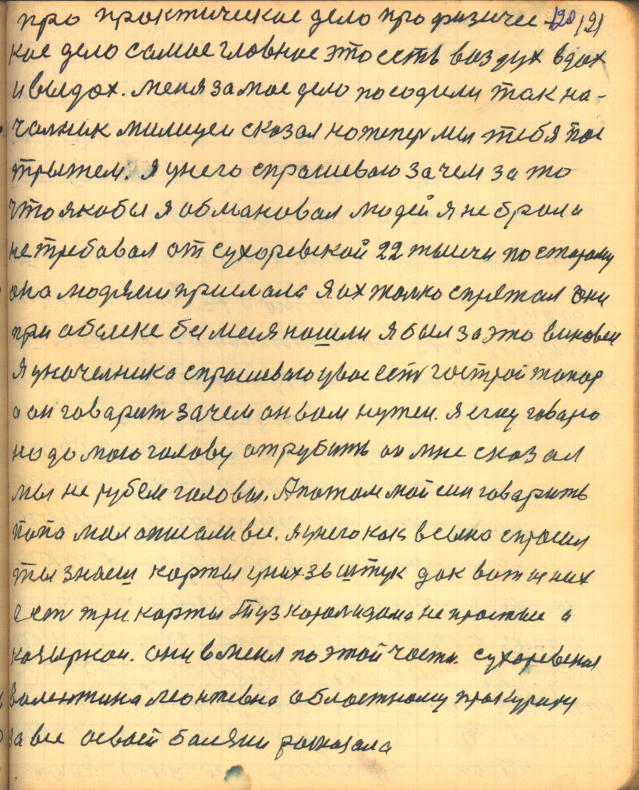 про практическое дело про физичес- 120 121
кое дело самое главное это есть воздух вдох
и выдох. меня за мое дело посодили так на-
чалник милицеи сказал но теперь мы тебя пос
трыжем. я унего спрашеваю зачем за то
что якобы я обмановал людей я не брал и
не требавал от сухоревской 22 тысичи по старому
она людями прислала я их толко спрятал они
при обыске бы меня нашли я был за это виновен
Я уначелника спрашеваю увас есть гострой топор
а он говарит зачем он вам нужен. Я ему говарю
надо мою голову отрубить он мне сказал
мы не рубем головы. А потом мой сын говарить
папа мы описали все. я унего как всына спросил
ты знаеш карты у них 36 штук дак вот в них
есть три карты Туз король и дама не простые а
козырнаи. они в меня по этой части. сухоревская
валентина леонтевна областному прокурору
за все освоей болезни росказала